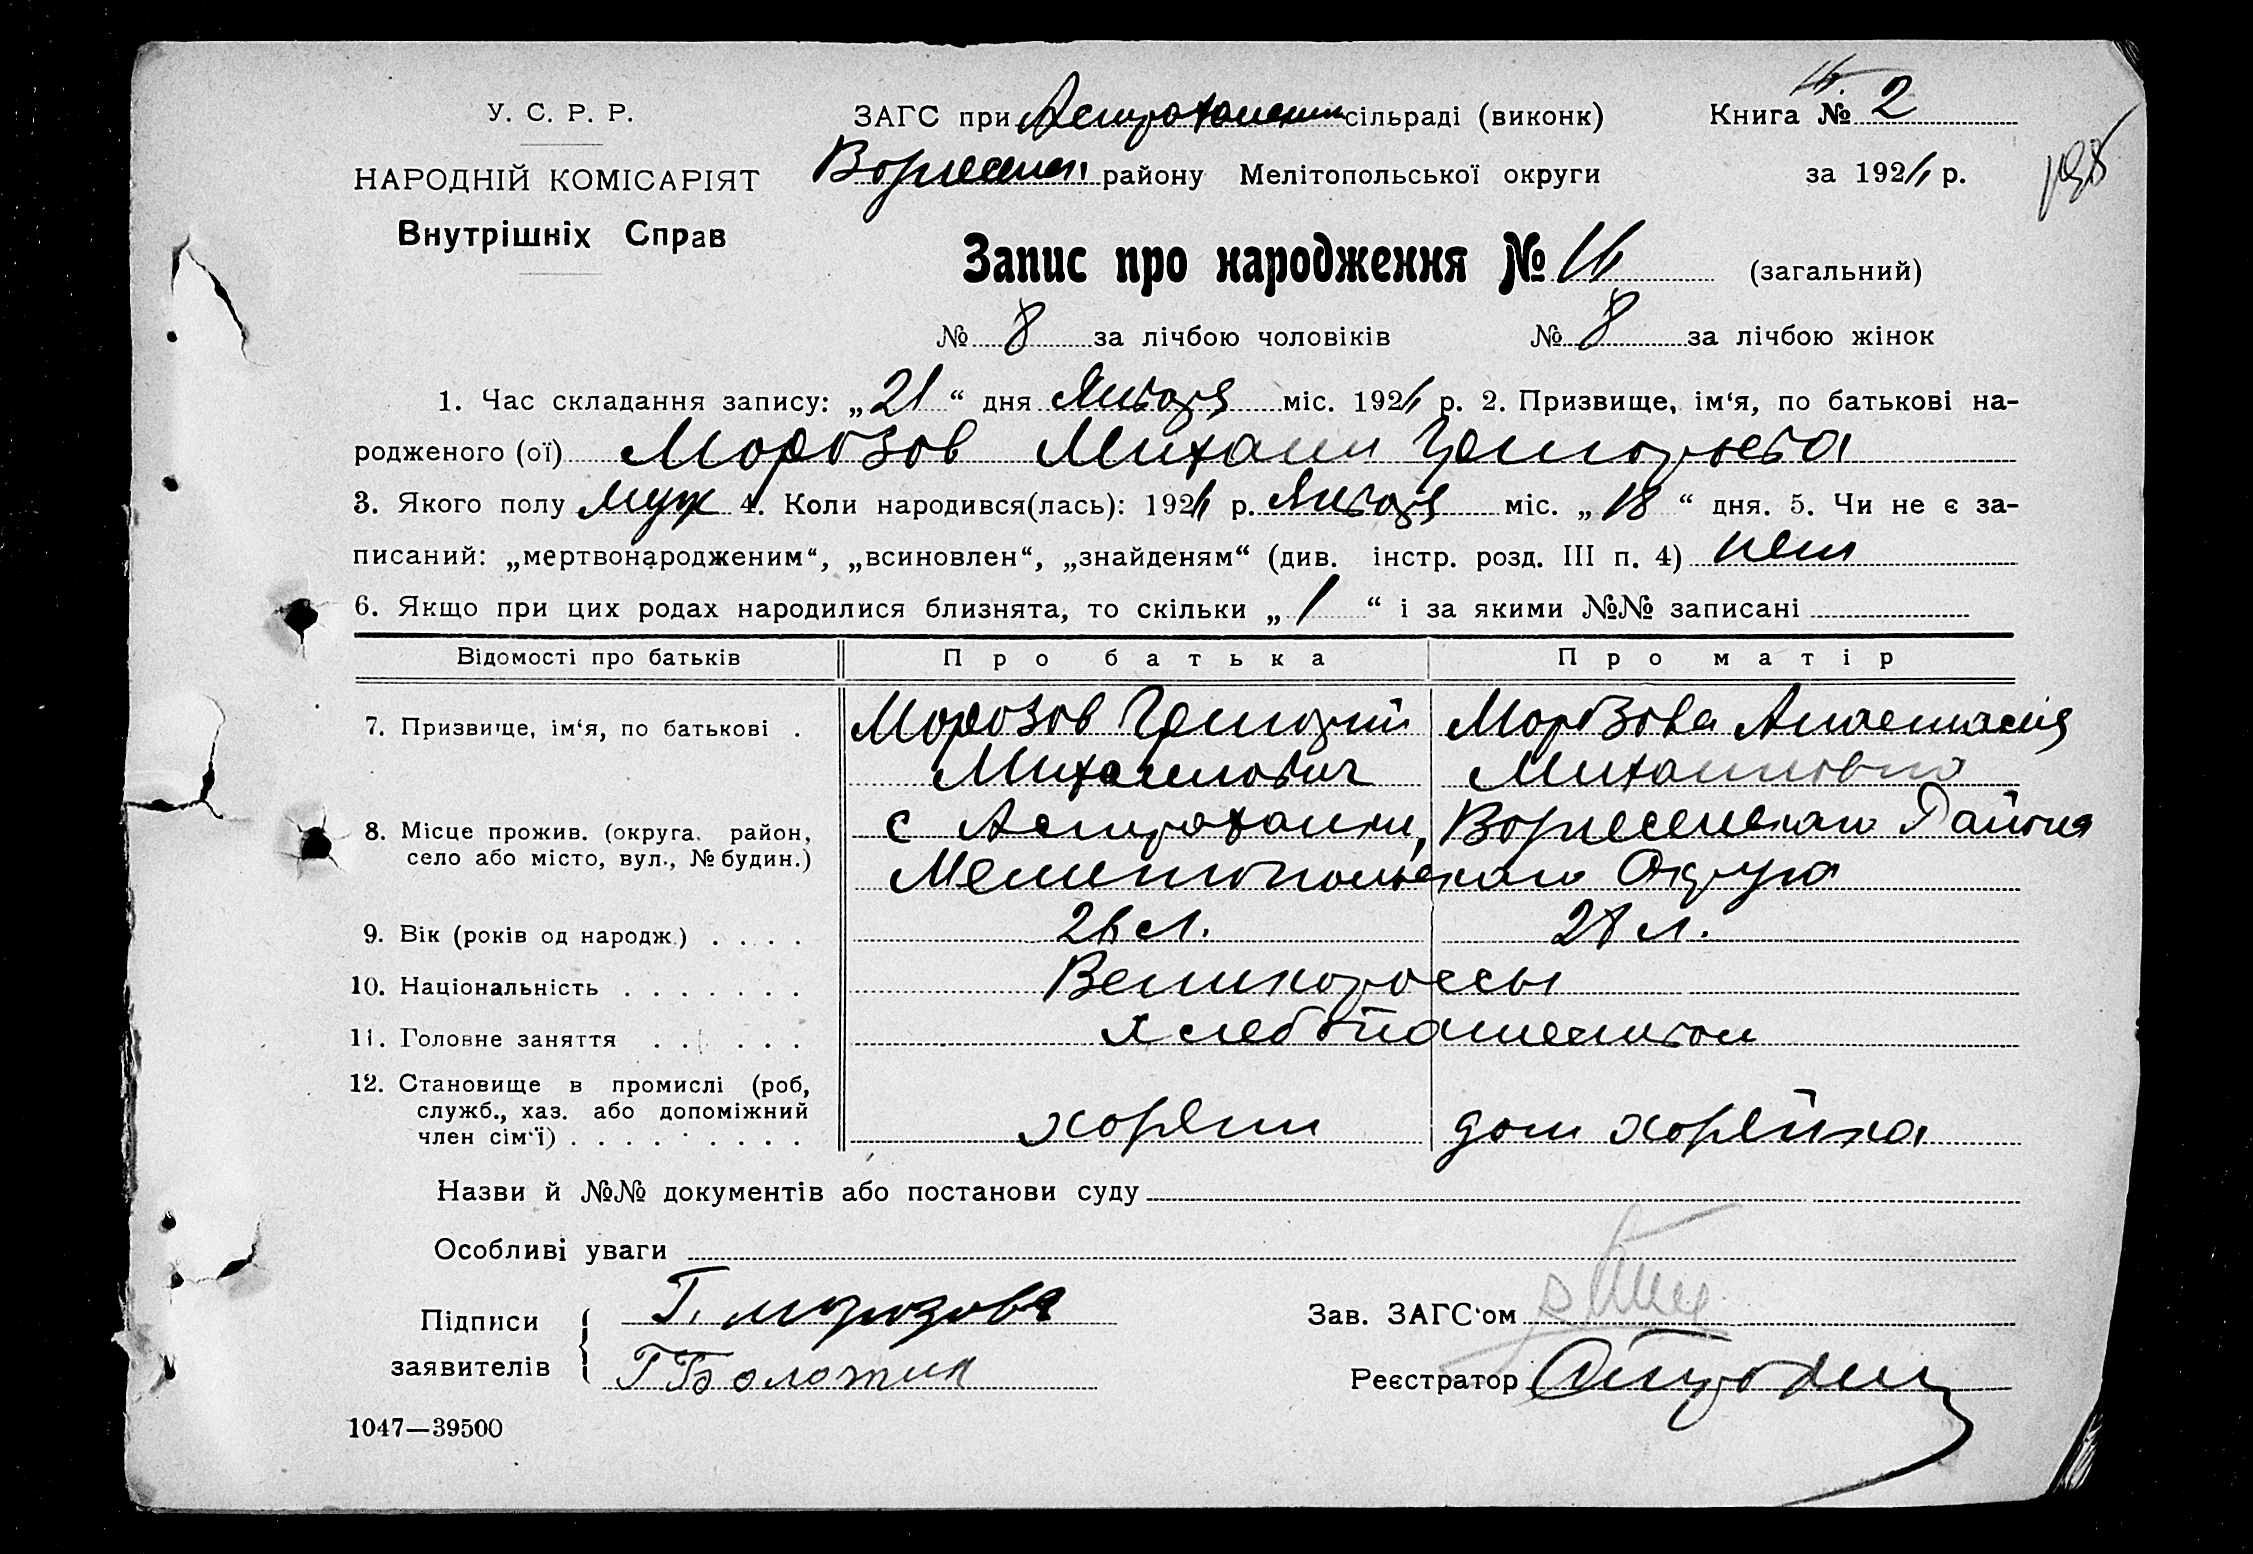 У. С. Р. Р.
НАРОДНІЙ КОМІСАРІЯТ
Внутрішніх Справ
ЗАГС при Астраханским сільраді (виконк)
Вознесенс. району Мелітопольської округи
Книга № 2
за 192 р.
Запис про народження № (загальний)
№ 8 за лічбою чоловіків № 8 за лічбою жінок
1. Час складання запису: „21“ дня Января міс. 192 р. 2. Призвище, ім‘я, по батькові на-
родженого (ої) Морозов Михаил Григорьева
3. Якого полу муж 4. Коли народився(лась): 192 р. Января міс. „18“ дня. 5. Чи не є за-
писаний: „мертвонародженим“, „всиновлен“, „знайденям“ (див. інстр. розд. III п. 4) нет
6. Якщо при цих родах народилися близнята, то скільки „1“ і за якими №№ записані
Відомості про батьків Про батька Про матір
7. Призвище, ім‘я, по батькові . Морозов Григорий Морозова Анастасия
Михаилович Михаиловна
8. Місце прожив. (округа, район, с Астраханки, Вознесенскаго Района
село або місто, вул., № будин.) Мелитопольскаго Округа
9. Вік (років од народж.) . . . . л. 28 л.
10. Національність . . . . . . . Великороссы
11. Головне заняття . . . . . . хлебопашеством
12. Становище в промислі (роб,
служб., хаз. або допоміжний
член сім‘ї) . . . . . . . . . . хозяин дом хозяйка
Назви й №№ документів або постанови суду
Особливі уваги
Підписи Г. Морозова
заявителів Г Болотин
Зав. ЗАГС‘ом
Реєстратор
1047—39500